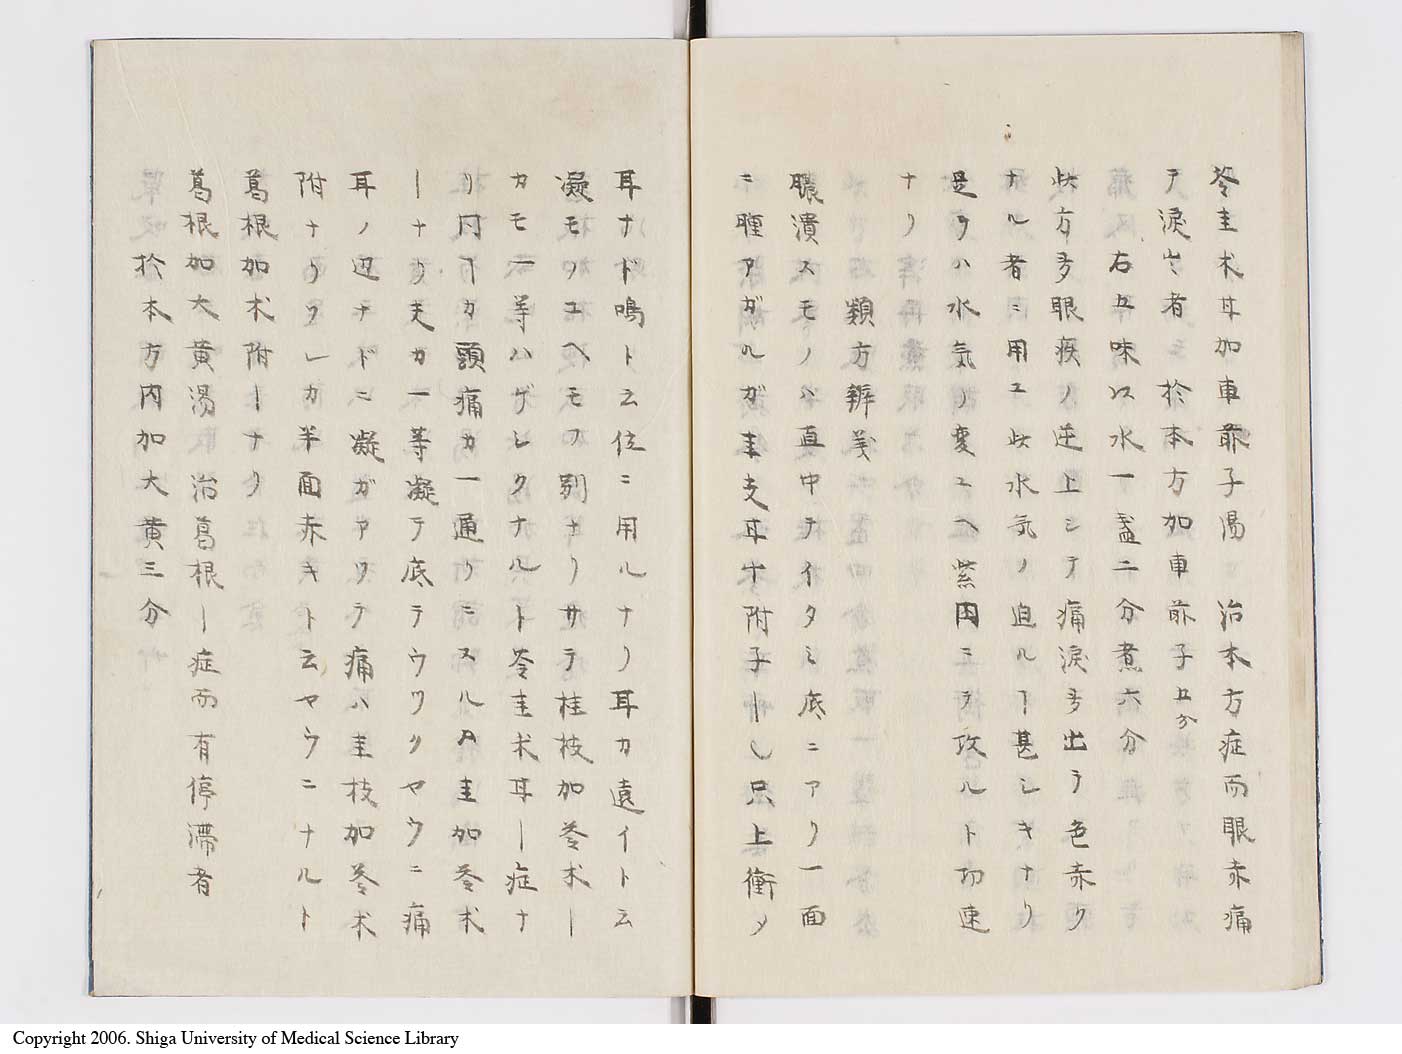 苓圭朮甘加車前子湯 治本方症而眼赤痛
テ淚出者 於本方加車前子五分
右五味以水一盞二分煮六分
此方多眼疾ノ逆上シテ痛淚多出テ色赤ク
ナル者ニ用ユ此水気ノ迫ルヿ甚シキナリ
是ヲハ水気ノ変ユヘ紫円ニテ攻ルト功速
ナリ
類方辨義
膿潰スモノハ直中テイタミ底ニアリ一面
ニ腫アガルガ圭支耳朮附子ノ只上衝タ
耳ナド鳴ト云位ニ用ルナリ耳カ遠イト云
凝モノユヘモノ別ナリサテ桂枝加苓朮ー
カモ一等ハゲシクナルト苓圭朮耳ー症ナ
リ内ヿカ頭痛カ一通リニスル圭加苓朮
ーナリ夫カ一等凝テ底テウツクヤウニ痛
耳ノ辺ナドニ凝ガアリテ痛ハ圭枝加苓朮
附ナリクレカ半面赤キト云ヤウニナルト
葛根加朮附ーナリ
葛根加大黄湯 治葛根ー症而有停滞者
於本方内加大黄三分